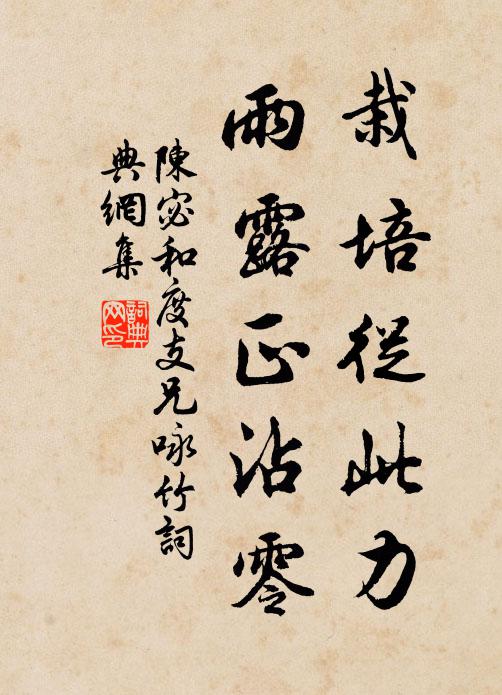 栽培從此力
雨露正沾零
陳宓和度支兄咏竹詞
典網集
詞典
网印